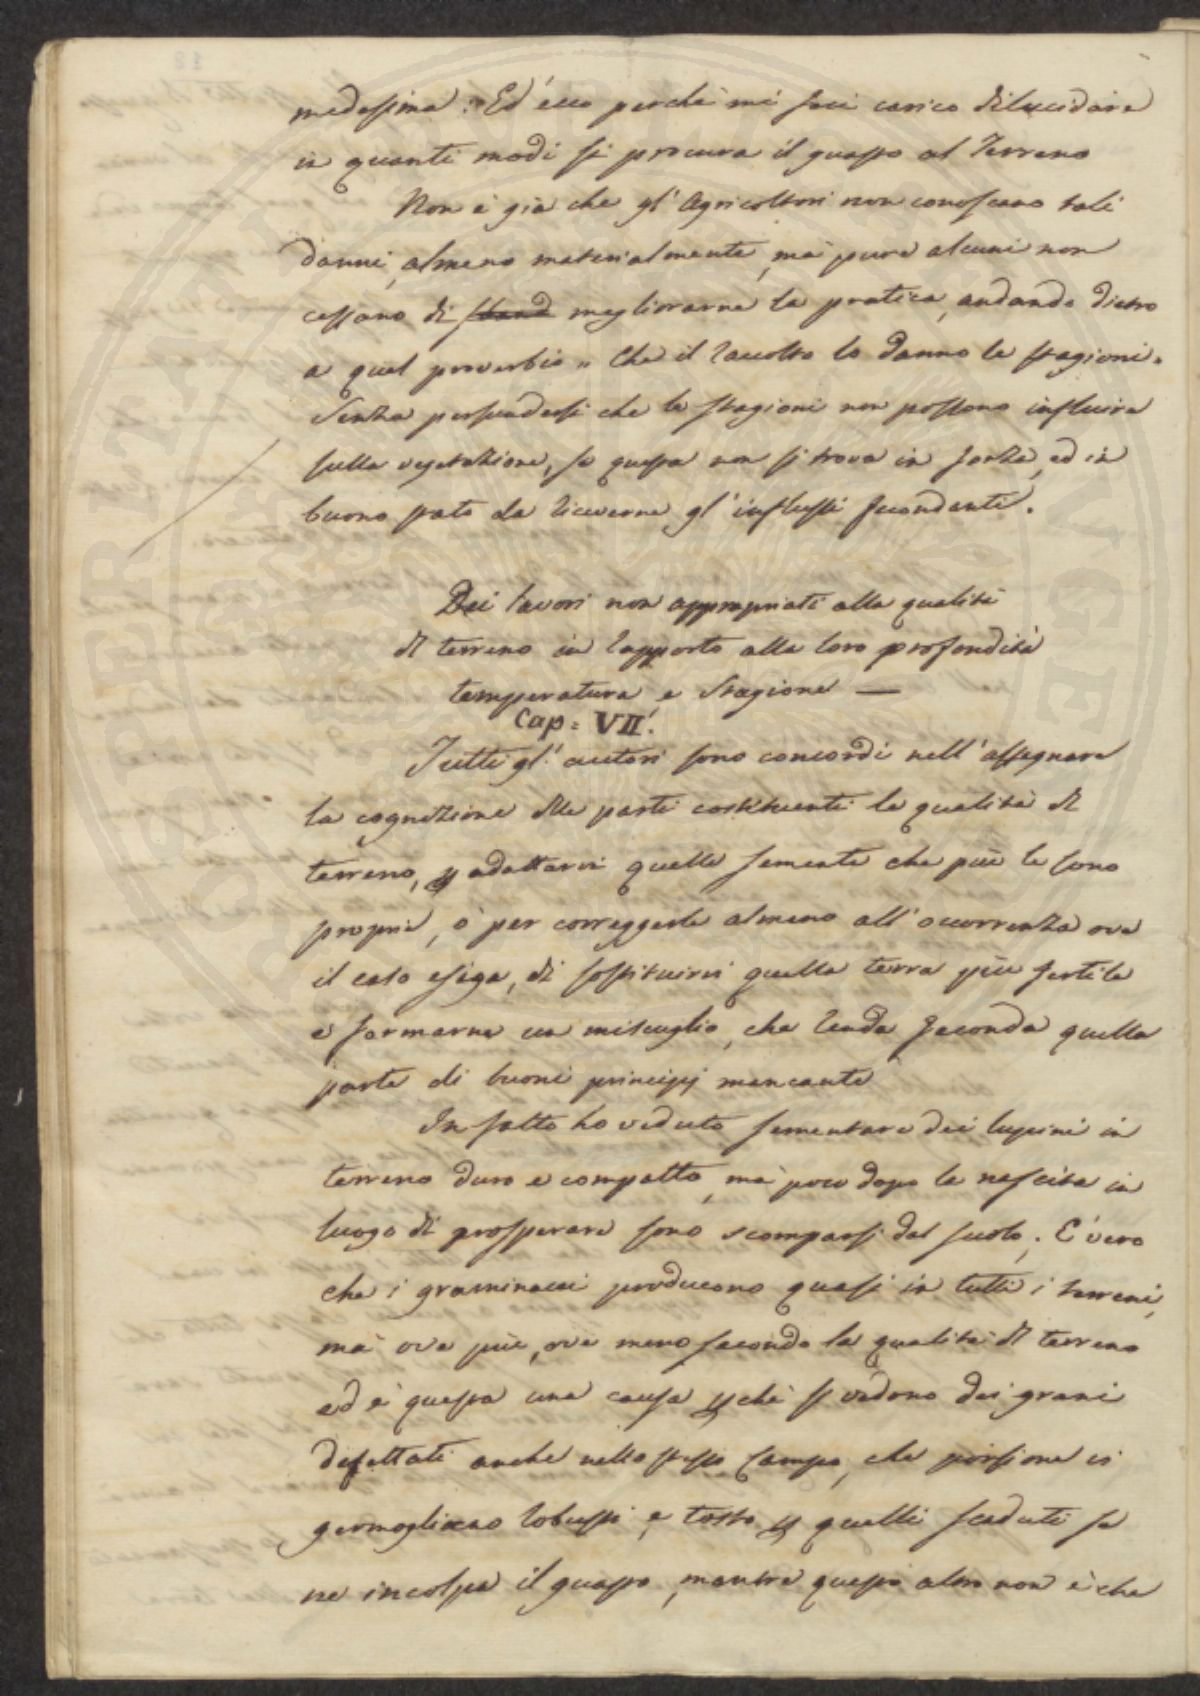 medesima: Ed ecco perchè mi feci carico dilucidare
in quanti modi si procura il guasto al Terreno
Non è già che gl'Agricoltori non conoscano tali
danni, almeno materialmente, mà pure alcuni non
cessano di megliorarne la pratica, andando dietro
a quel proverbio „ Che il raccolto lo danno le stagioni „
Senza persuadersi che le stagioni non possono influire
sulla vegetazione, se questa non si trova in forza, ed in
buono stato da riceverne gl'influssi fecondanti.
Dei lavori non appropriati alla qualità
di terreno in rapporto alla loro profondità
temperatura, e Stagione —
Cap = VII.
Tutti gl'autori sono concordi nell'assegnare
la cognizione delle parti costituenti la qualità di
terreno, p adattarvi quelle semente che più le sono
proprie, ò per correggerle almeno all'occorrenza ove
il caso esiga, di sostituirvi quella terra più fertile
e formarne un miscuglio, che renda feconda quella
parte di buoni principj mancante
In fatto ho veduto sementare dei lupini in
terreno duro e compatto, mà poco dopo la nascita in
luogo di prosperare sono scomparsi dal suolo. E' vero
che i graminacei producono quasi in tutti i terreni,
mà ove più, ove meno secondo la qualità di terreno
ed è questa una causa pchè si vedono dei grani
difettati anche nello stesso Campo, che porzione vi
germogliano robusti, e tosto p quelli scaduti se
ne incolpa il guasto, mentre questo altro non è che